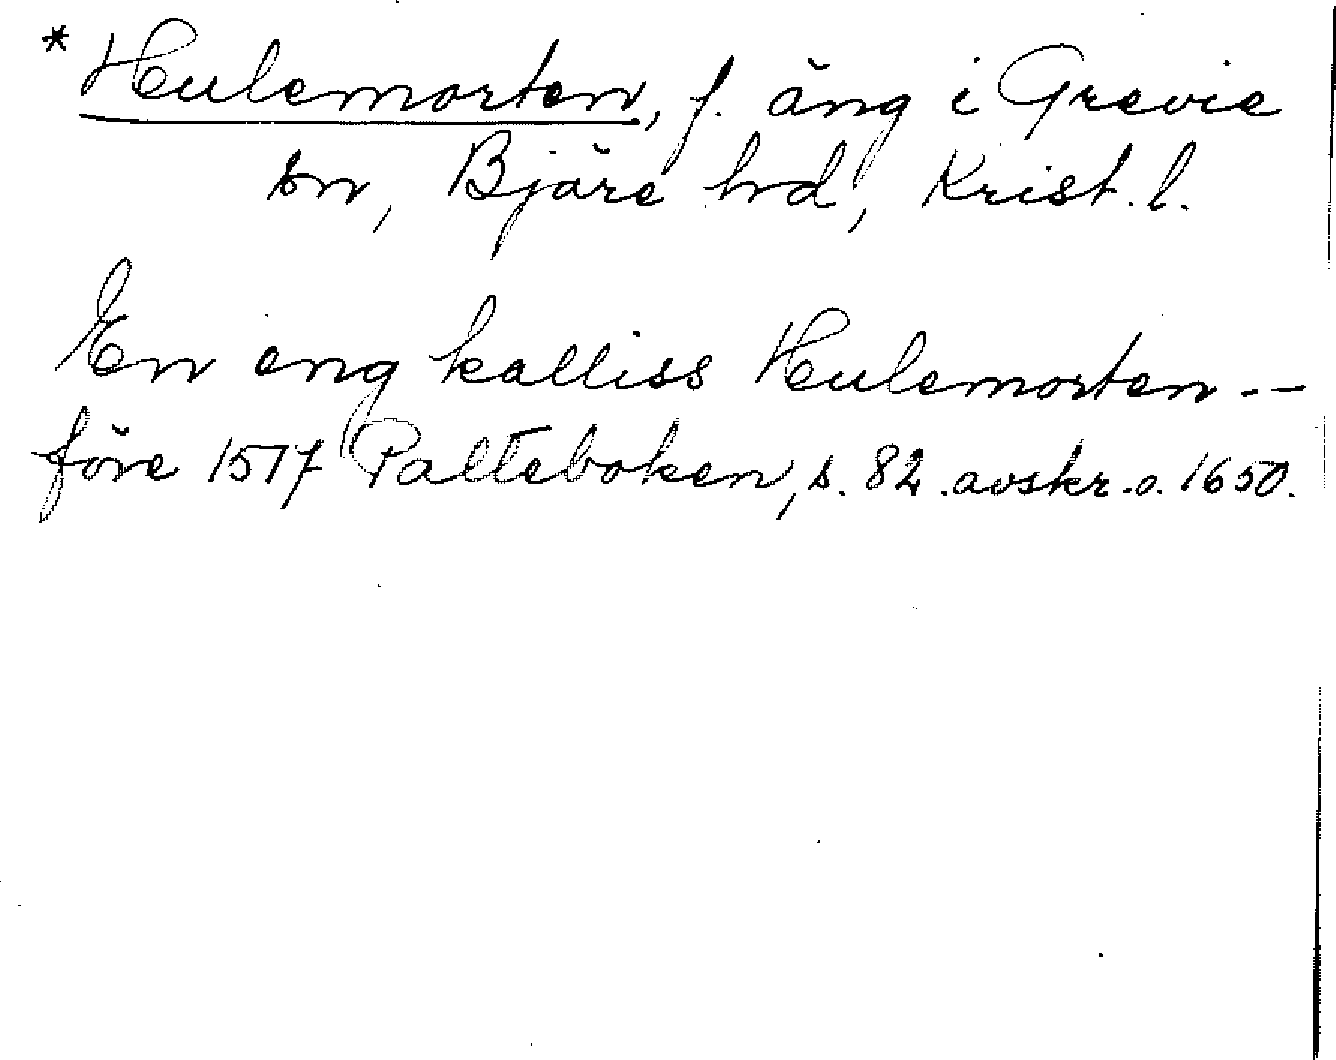 * Hulemorten, f. äng i Grevie
sn, Bjäre hd, Krist. l.
En eng kalliss Hulemorten --
före 1517 Palteboken, s. 82. avskr. o. 1650.